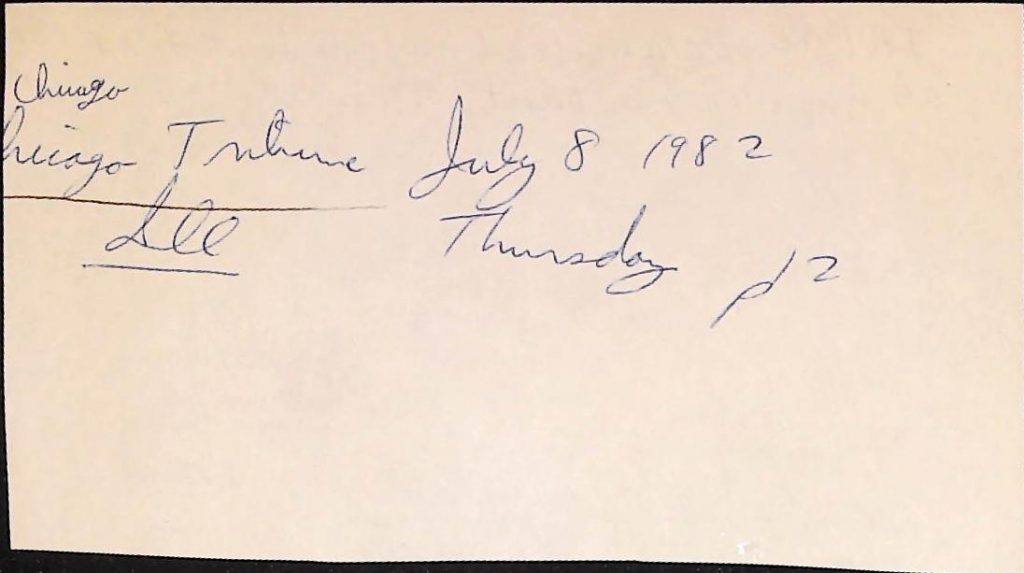 Chicago
hicago Tribune July 8 1982
Ill Thursday p 2